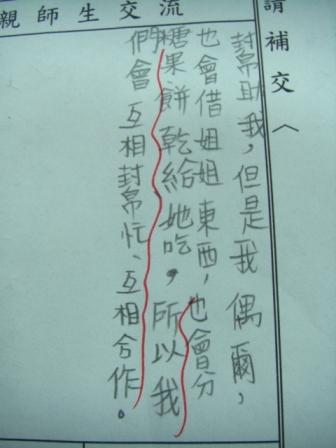 親師生交流
請補交〈
幫助我，但是我偶爾，
也會借姐姐東西，也會分
糖果、餅乾給她吃，所以我
們會互相幫忙、互相合作。